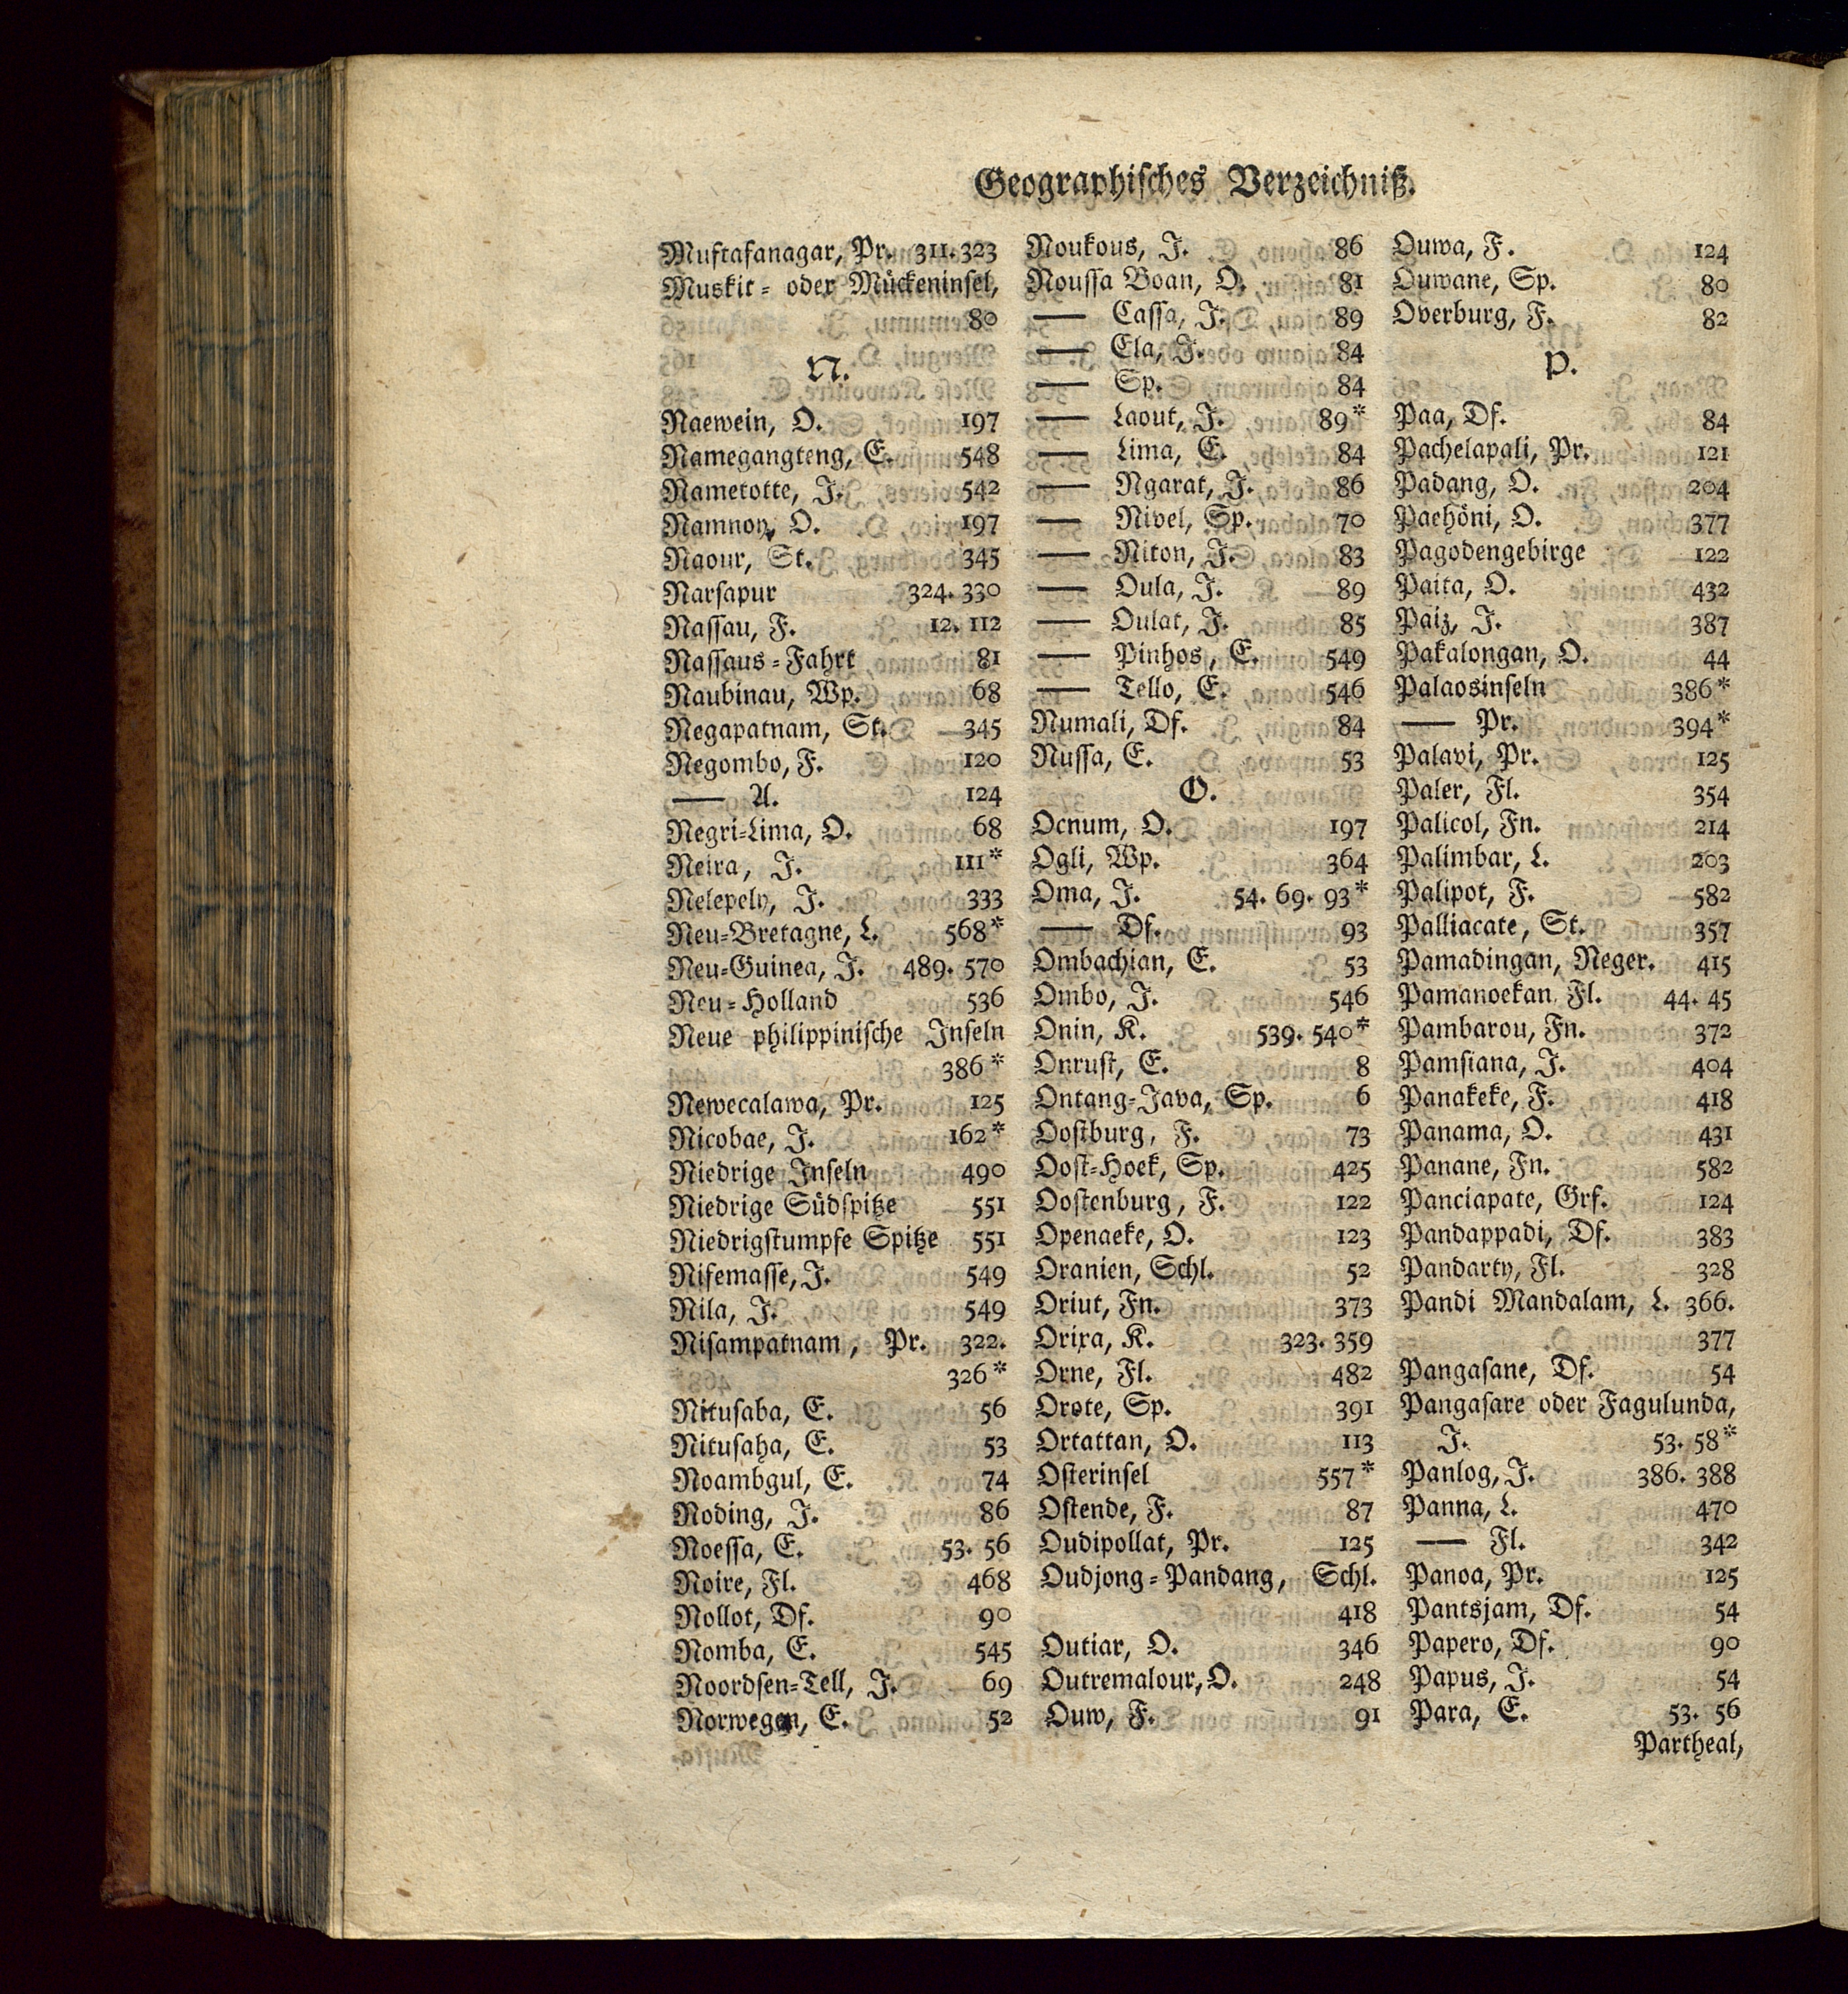 Geographisches Verzeichniß.
Mustafanagar, Pr. 311. 323
Muskit- oder Mückeninsel,
80
N.
Naewein, O. 197
Namegangteng, E. 548
Nametotte, J. 542
Namnon, O. 197
Naour, St. 345
Narsapur 324. 330
Nassau, F. 12. 112
Nassaus-Fahrt 81
Naubinau, Wp. 68
Negapatnam, St. 345
Negombo, F. 120
—— A. 124
Negri-Lima, O. 68
Neira, J. 111*
Nelepely, J. 333
Neu-Bretagne, L. 568*
Neu-Guinea, J. 489. 570
Neu-Holland 536
Neue philippinische Inseln
386*
Newecalawa, Pr. 125
Nicobae, J. 162*
Niedrige Inseln 490
Niedrige Südspitze 551
Niedrigstumpfe Spitze 551
Nifemasse, J. 549
Nila, J. 549
Nisampatnam, Pr. 322.
326*
Nitusaba, E. 56
Nitusaha, E. 53
Noambgul, E. 74
Noding, J. 86
Noessa, E. 53. 56
Noire, Fl. 468
Nollot, Df. 90
Nomba, E. 545
Noordsen-Tell, J. 69
Norwegen, E. 52
Noukous, J. 86
Noussa Boan, O. 81
—— Cassa, J. 89
—— Ela, J. 84
—— Sp. 84
—— Laout, J. 89*
—— Lima, E. 84
—— Ngarat, J. 86
—— Nivel, Sp. 70
—— Niton, J. 83
—— Oula, J. 89
—— Oulat, J. 85
—— Pinhos, E. 549
—— Tello, E. 546
Numali, Df. 84
Nussa, E. 53
O.
Ocnum, O. 197
Ogli, Wp. 364
Oma, J. 54. 69. 93*
—— Df. 93
Ombachian, E. 53
Ombo, J. 546
Onin, K. 539. 540*
Onrust, E. 8
Ontang-Java, Sp. 6
Oostburg, F. 73
Oost-Hoek, Sp. 425
Oostenburg, F. 122
Openaeke, O. 123
Oranien, Schl. 52
Oriut, Fn. 373
Orixa, K. 323. 359
Orne, Fl. 482
Orote, Sp. 391
Ortattan, O. 113
Osterinsel 557*
Ostende, F. 87
Oudipollat, Pr. 125
Oudjong-Pandang, Schl.
418
Outiar, O. 346
Outremalour, O. 248
Ouw, F. 91
Ouwa, F. 124
Ouwane, Sp. 80
Overburg, F. 82
P.
Paa, Df. 84
Pachelapali, Pr. 121
Padang, O. 204
Paehöni, O. 377
Pagodengebirge 122
Paita, O. 432
Paiz, J. 387
Pakalongan, O. 44
Palaosinseln 386*
—— Pr. 394*
Palavi, Pr. 125
Paler, Fl. 354
Palicol, Fn. 214
Palimbar, L. 203
Palipot, F. 582
Palliacate, St. 357
Pamadingan, Neger. 415
Pamanoekan, Fl. 44. 45
Pambarou, Fn. 372
Pamsiana, J. 404
Panakeke, F. 418
Panama, O. 431
Panane, Fn. 582
Panciapate, Grf. 124
Pandappadi, Df. 383
Pandarty, Fl. 328
Pandi Mandalam, L. 366.
377
Pangasane, Df. 54
Pangasare oder Fagulunda,
J. 53. 58*
Panlog, J. 386. 388
Panna, L. 470
—— Fl. 342
Panoa, Pr. 125
Pantsjam, Df. 54
Papero, Df. 90
Papus, J. 54
Para, E. 53. 56
Partheal,